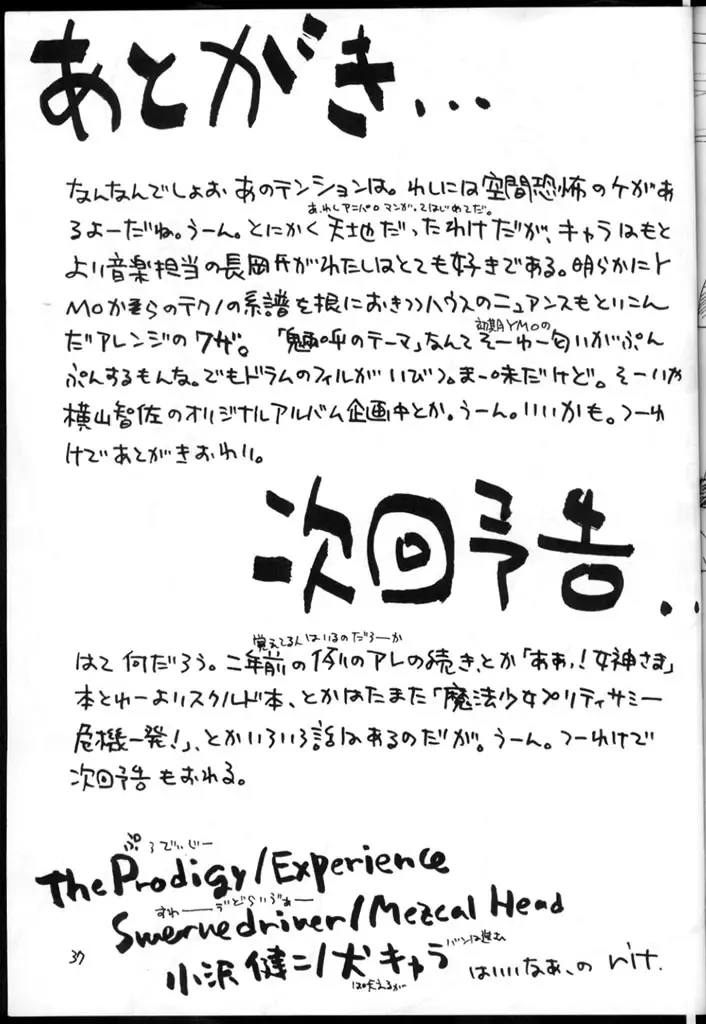 あとがき...
なんなんでしょお あのテンションは。わしには空間恐怖のケがあ
あ、わしアニパロマンガってはじめてだ。
るよーだね。うーん。とにかく天地だったわけだが、キャラはもと
より音楽担当の長岡氏がわたしはとても好きである。明らかにY
MOからのテクノの系譜を根におきつつハウスのニュアンスもとりこん
初期YMOの
だアレンジのワザ。「魎呼のテーマ」なんてそーゆー匂いがぷん
ぷんするもんな。でもドラムのフィルがいびつ。まー味だけど。そーいや
横山智佐のオリジナルアルバム企画中とか。うーん。いいかも。つーわ
けであとがきおわり。
次回予告..
覚えてる人はいるのだろーか
はて何だろう。二年前の例のアレの続き、とか「ああっ!女神さま」
本とゆーよりスクルド本、とかはたまた「魔法少女プリティサミー
危機一発!」、とかいろいろ話はあるのだが。うーん。つーわけで
次回予告もおわる。
ぷろでぃじー
The Prodigy/Experience
すわーゔどらいぶぁー
Swervedriver/Mezcal Head
小沢健二/犬キャラ
は吠えるが
バンは進む
はいいなあ、の
37